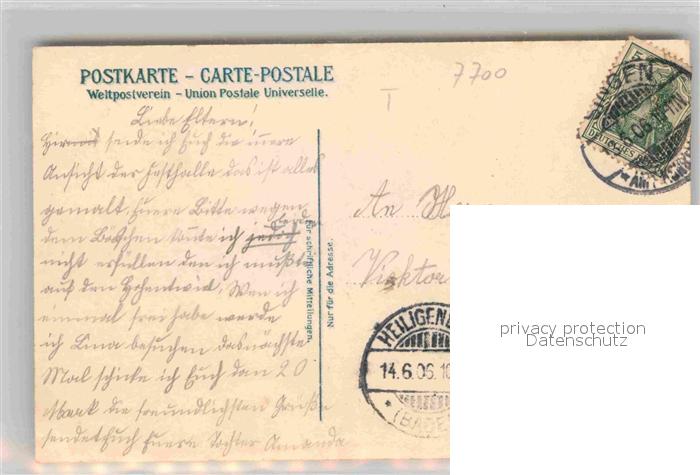 POSTKARTE – CARTE-POSTALE
Weltpostverein – Union Postale Universelle.
7700
T
Liebe Eltern!
sende ich Euch die innere
Ansicht der Festhalle das ist alles
gemalt, Euere Bitte wegen
dem konnte ich
nicht erfüllen den ich mußte
auf den Hohentwiel, Wen ich
einmal frei habe werde
ich Lina besuchen das nächste
Mal schicke ich Euch dan 20
Mark die freundlichsten Grüße
sendet Euch Euere Tochter Amanda
Für schriftliche Mitteilungen.
Nur für die Adresse.
An
Viktor
HEILIGENB
14.6.06.10
(BADEN
SINGEN
DEUTSCHES
privacy protection
Datenschutz